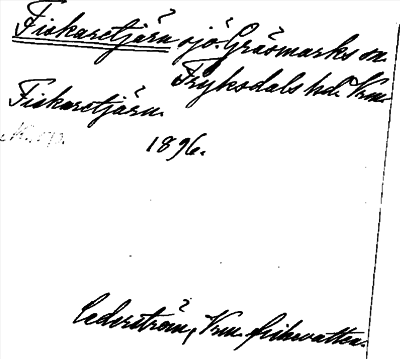 Fiskaretjärn sjö. Gräsmarks sn.
Fryksdals hd. Vrm.
Fiskaretjärn.
1896.
Cederström, Vrm. fiskevatten.